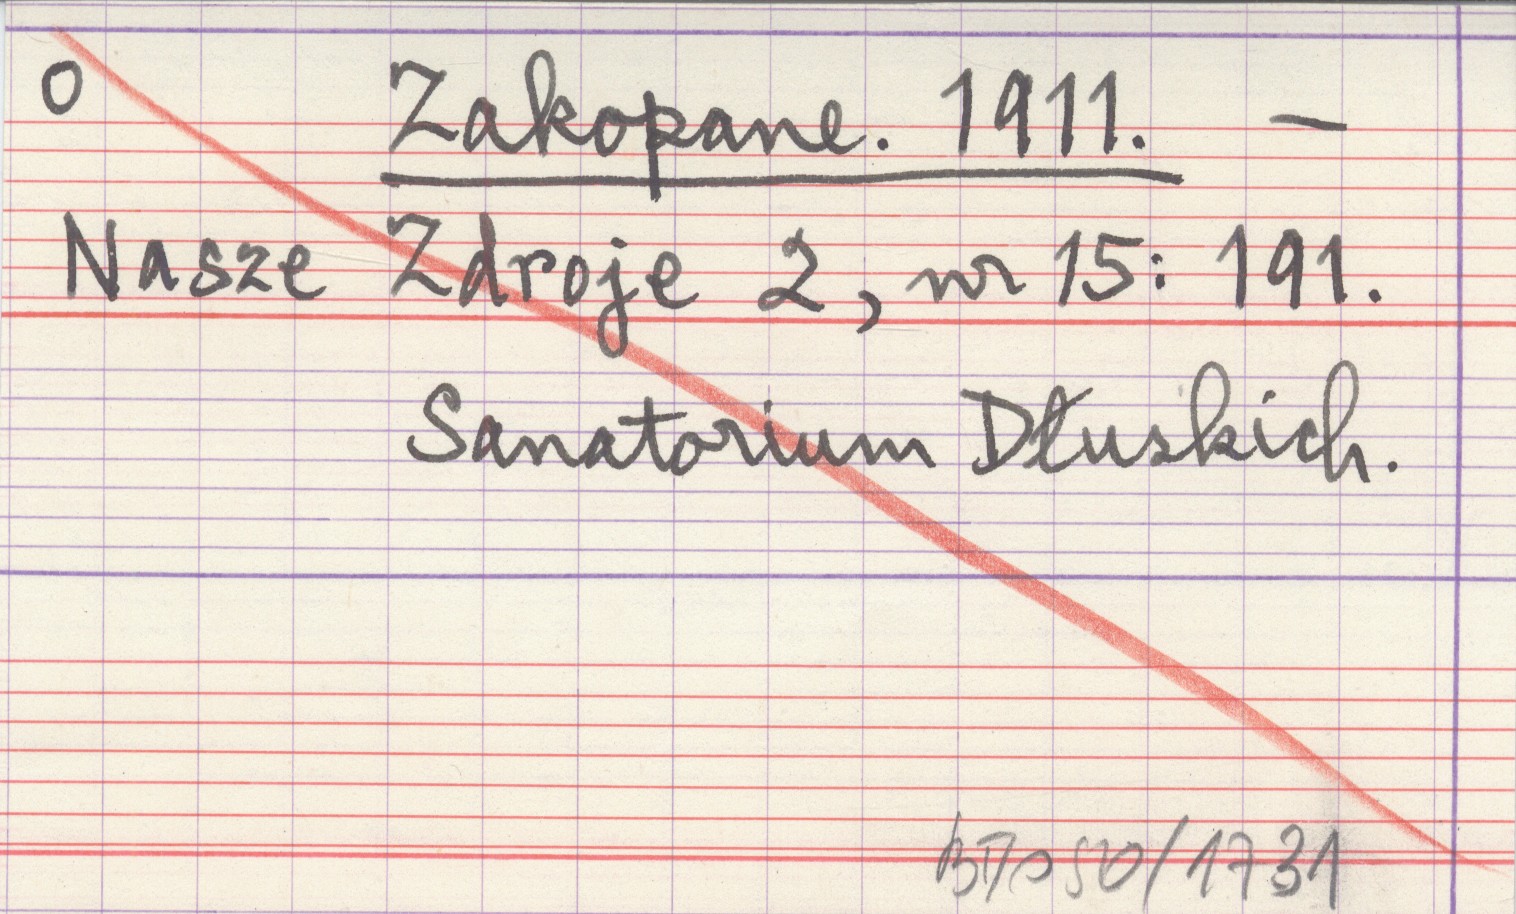 o Zakopane. 1911. —
Nasze Zdroje 2, nr 15: 191.
Sanatorium Dłuskich.
50/1731